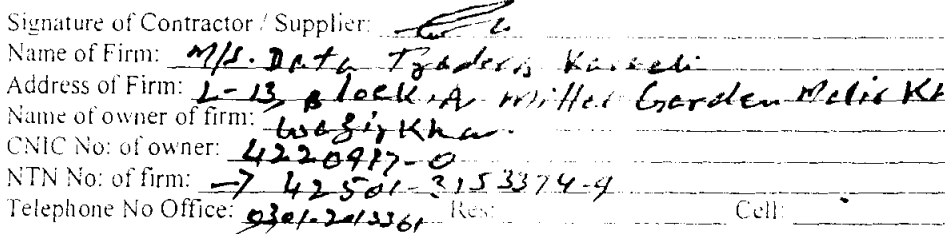 Signature of Contractor / Supplier:
Name of Firm: M/S. Data Traders Karachi
Address of Firm: L-13, Block-A Millet Garden Malir Kh
Name of owner of firm: Wazir Khan
CNIC No: of owner: 4220917-0
NTN No: of firm: → 42501-3153374-9
Telephone No Office: 0301-2013361 Res: Cell: